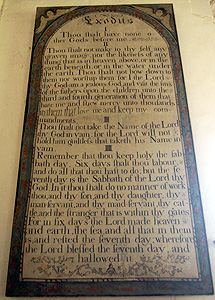 Exodus
Thou shalt have none o
ther Gods before me
II
Thou shalt not make to thy self any
graven image nor the likeness of any
thing that is in heaven above or in the
earth beneath or in the water under
the earth. Thou shalt not bow down to
them nor worship them for I the Lord
thy God am a jealous God, and visit the sins
of the fathers upon the children unto the
third and fourth generation of them that
hate me and shew mercy unto thousands
in them that love me and keep my
commandments.
III
Thou shalt not take the Name of the Lord
thy God in vain, for the Lord will not
hold him guiltless that taketh his Name
vain.
Remember that thou keep holy the Sab
bath day. Six days shalt thou labour
and do all that thou hast to do; but the se
venth day is the Sabbath of the Lord thy
God. In it thou shalt do no manner of work
thou, and thy son, and thy daughter, thy
man servant, and thy maid servant, thy cat
tle, and the stranger that is within thy gates.
For in six days the Lord made heaven &
earth, the sea, and all that in them
is, and rested the seventh day, wherefore
the Lord blessed the seventh day, and
hallowed it